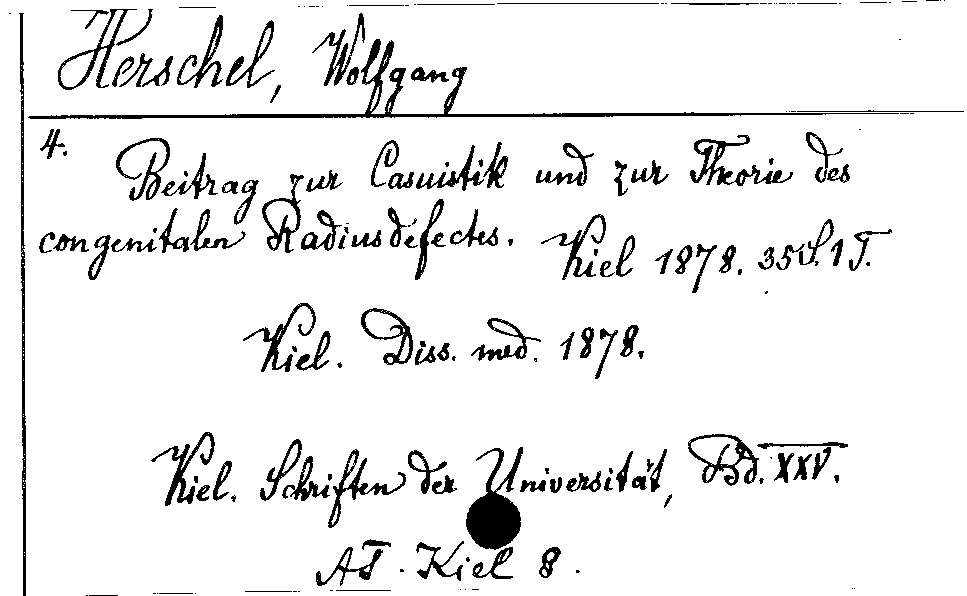 Herschel, Wolfgang
4.
Beitrag zur Casuistik und zur Theorie des
congenitalen Radiusdefectes. Kiel 1878. 35 S. 1 T.
Kiel. Diss. med. 1878.
Kiel. Schriften der Universität, Bd. XXV.
AT. Kiel 8.